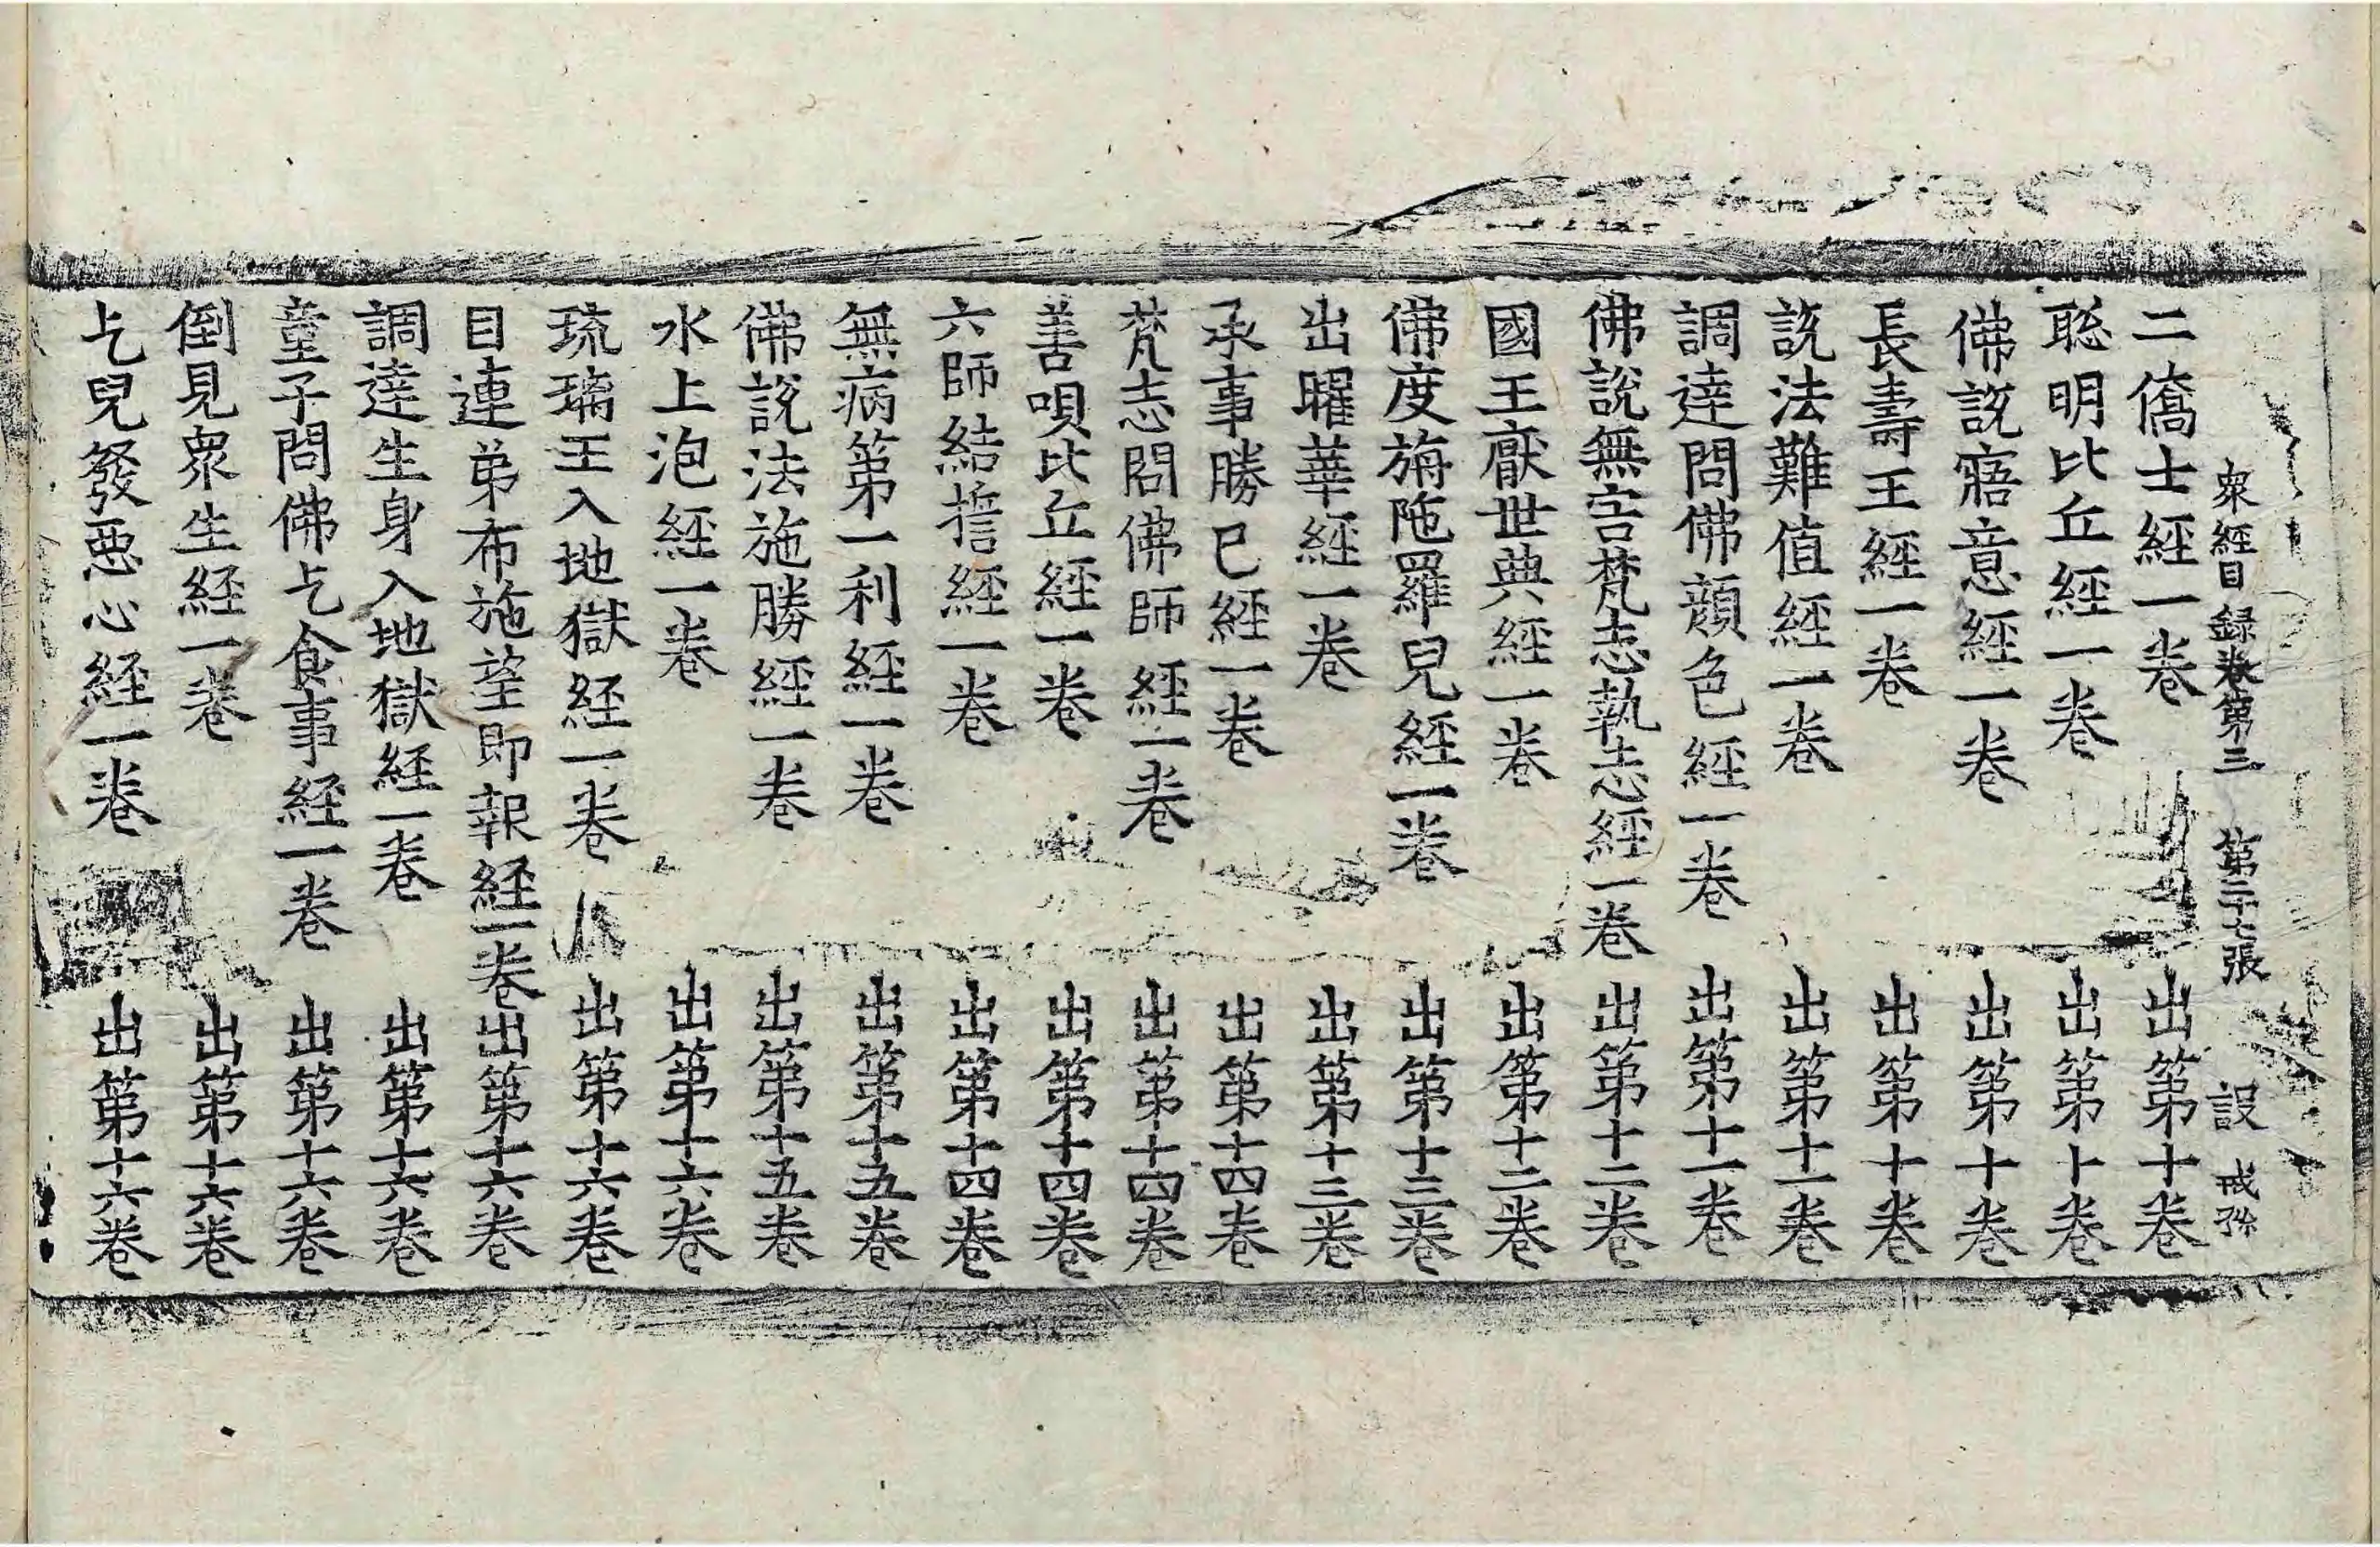 衆經目録卷第三 第二十七張 設 戒孫
二僑士經一卷 出第十卷
聡明比丘經一卷 出第十卷
佛說寤意經一卷 出第十卷
長壽王經一卷 出第十卷
說法難值經一卷 出第十一卷
調達問佛顔色經一卷 出第十一卷
佛說無害梵志執志經一卷 出第十二卷
國王厭世典經一卷 出第十二卷
佛度旃陁羅兒經一卷 出第十三卷
出曜華經一卷 出第十三卷
承事勝已經一卷 出第十四卷
梵志問佛師經一卷 出第十四卷
善唄比丘經一卷 出第十四卷
六師結誓經一卷 出第十四卷
無病第一利經一卷 出第十五卷
佛說法施勝經一卷 出第十五卷
水上泡經一卷 出第十六卷
琉璃王入地獄經一卷 出第十六卷
目連弟布施望即報經一卷 出第十六卷
調達生身入地獄經一卷 出第十六卷
童子問佛乞食事經一卷 出第十六卷
倒見衆生經一卷 出第十六卷
乞兒發惡心經一卷 出第十六卷